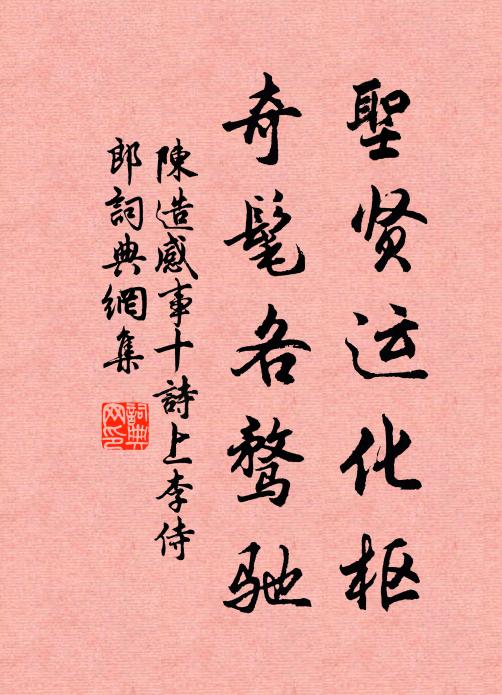 聖贤运化枢
奇髦各骛驰
陳造感事十詩上李侍
郎詞典網集
詞典
网印